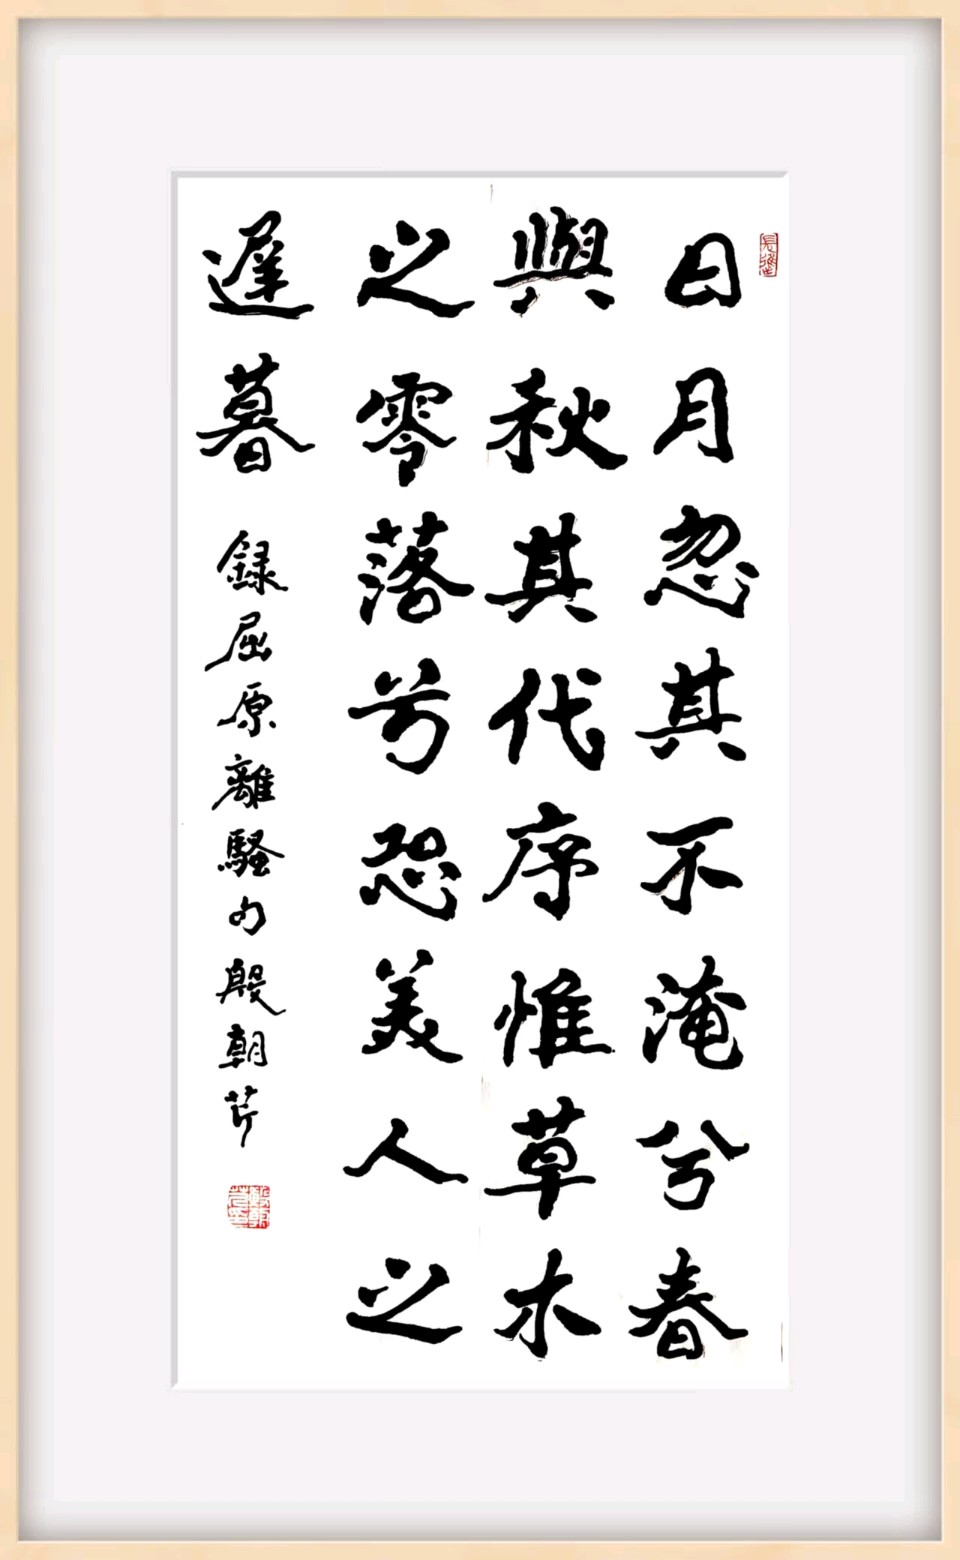 日月忽其不淹兮春
與秋其代序惟草木
之零落兮恐美人之
遲暮
錄屈原離騷句殷朝芹